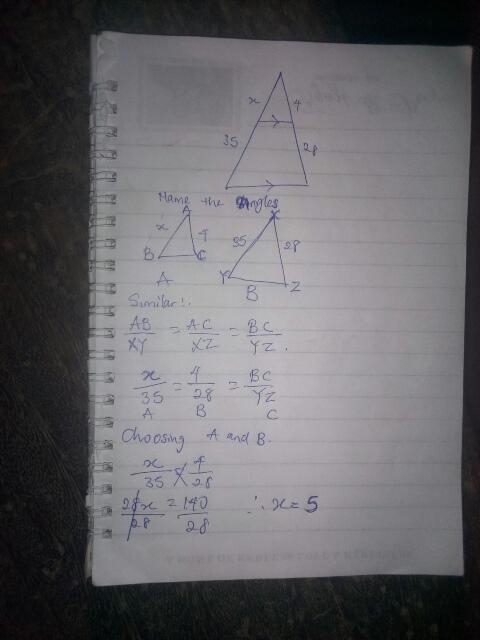 x 4
35 28
Name the Angles
A X
x 4 35 28
B C Y Z
A B
Similar:.
AB/XY = AC/XZ = BC/YZ.
x/35 = 4/28 = BC/YZ
A B C
Choosing A and B.
x/35 4/28
28x/28 = 140/28 ∴ x = 5